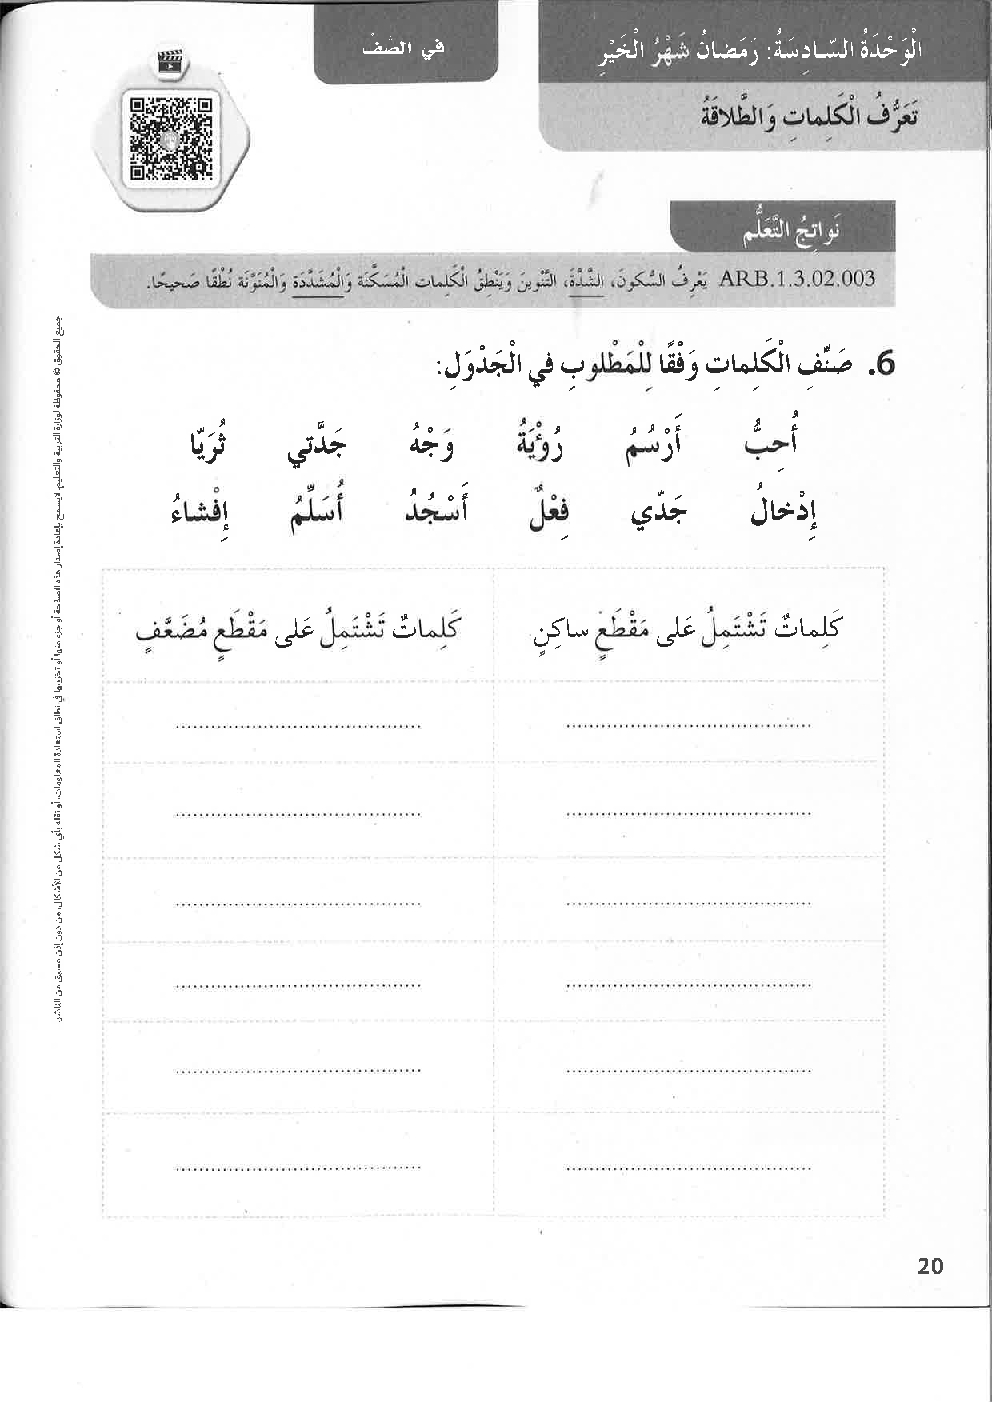 الْوَحْدَةُ السّادِسَةُ: رَمَضانُ شَهْرُ الْخَيْرِ
في الصَّفّ
تَعَرُّفُ الْكَلِماتِ وَالطَّلاقَةُ
نَواتِجُ التَّعَلُّم
ARB.1.3.02.003 يَعْرِفُ السُّكونَ، الشَّدَّةَ، التَّنْوينَ وَيَنْطِقُ الْكَلِماتِ الْمُسَكَّنَةَ وَالْمُشَدَّدَةَ وَالْمُنَوَّنَةَ نُطْقًا صَحيحًا.
6. صَنِّفِ الْكَلِماتِ وَفْقًا لِلْمَطْلوبِ في الْجَدْوَلِ:
أُحِبُّ أَرْسُمُ رُؤْيَةُ وَجْهُ جَدَّتي ثُرَيّا
إِدْخالُ جَدّي فِعْلٌ أَسْجُدُ أُسَلِّمُ إِفْشاءُ
كَلِماتٌ تَشْتَمِلُ عَلى مَقْطَعٍ ساكِنٍ
كَلِماتٌ تَشْتَمِلُ عَلى مَقْطَعٍ مُضَعَّفٍ
20